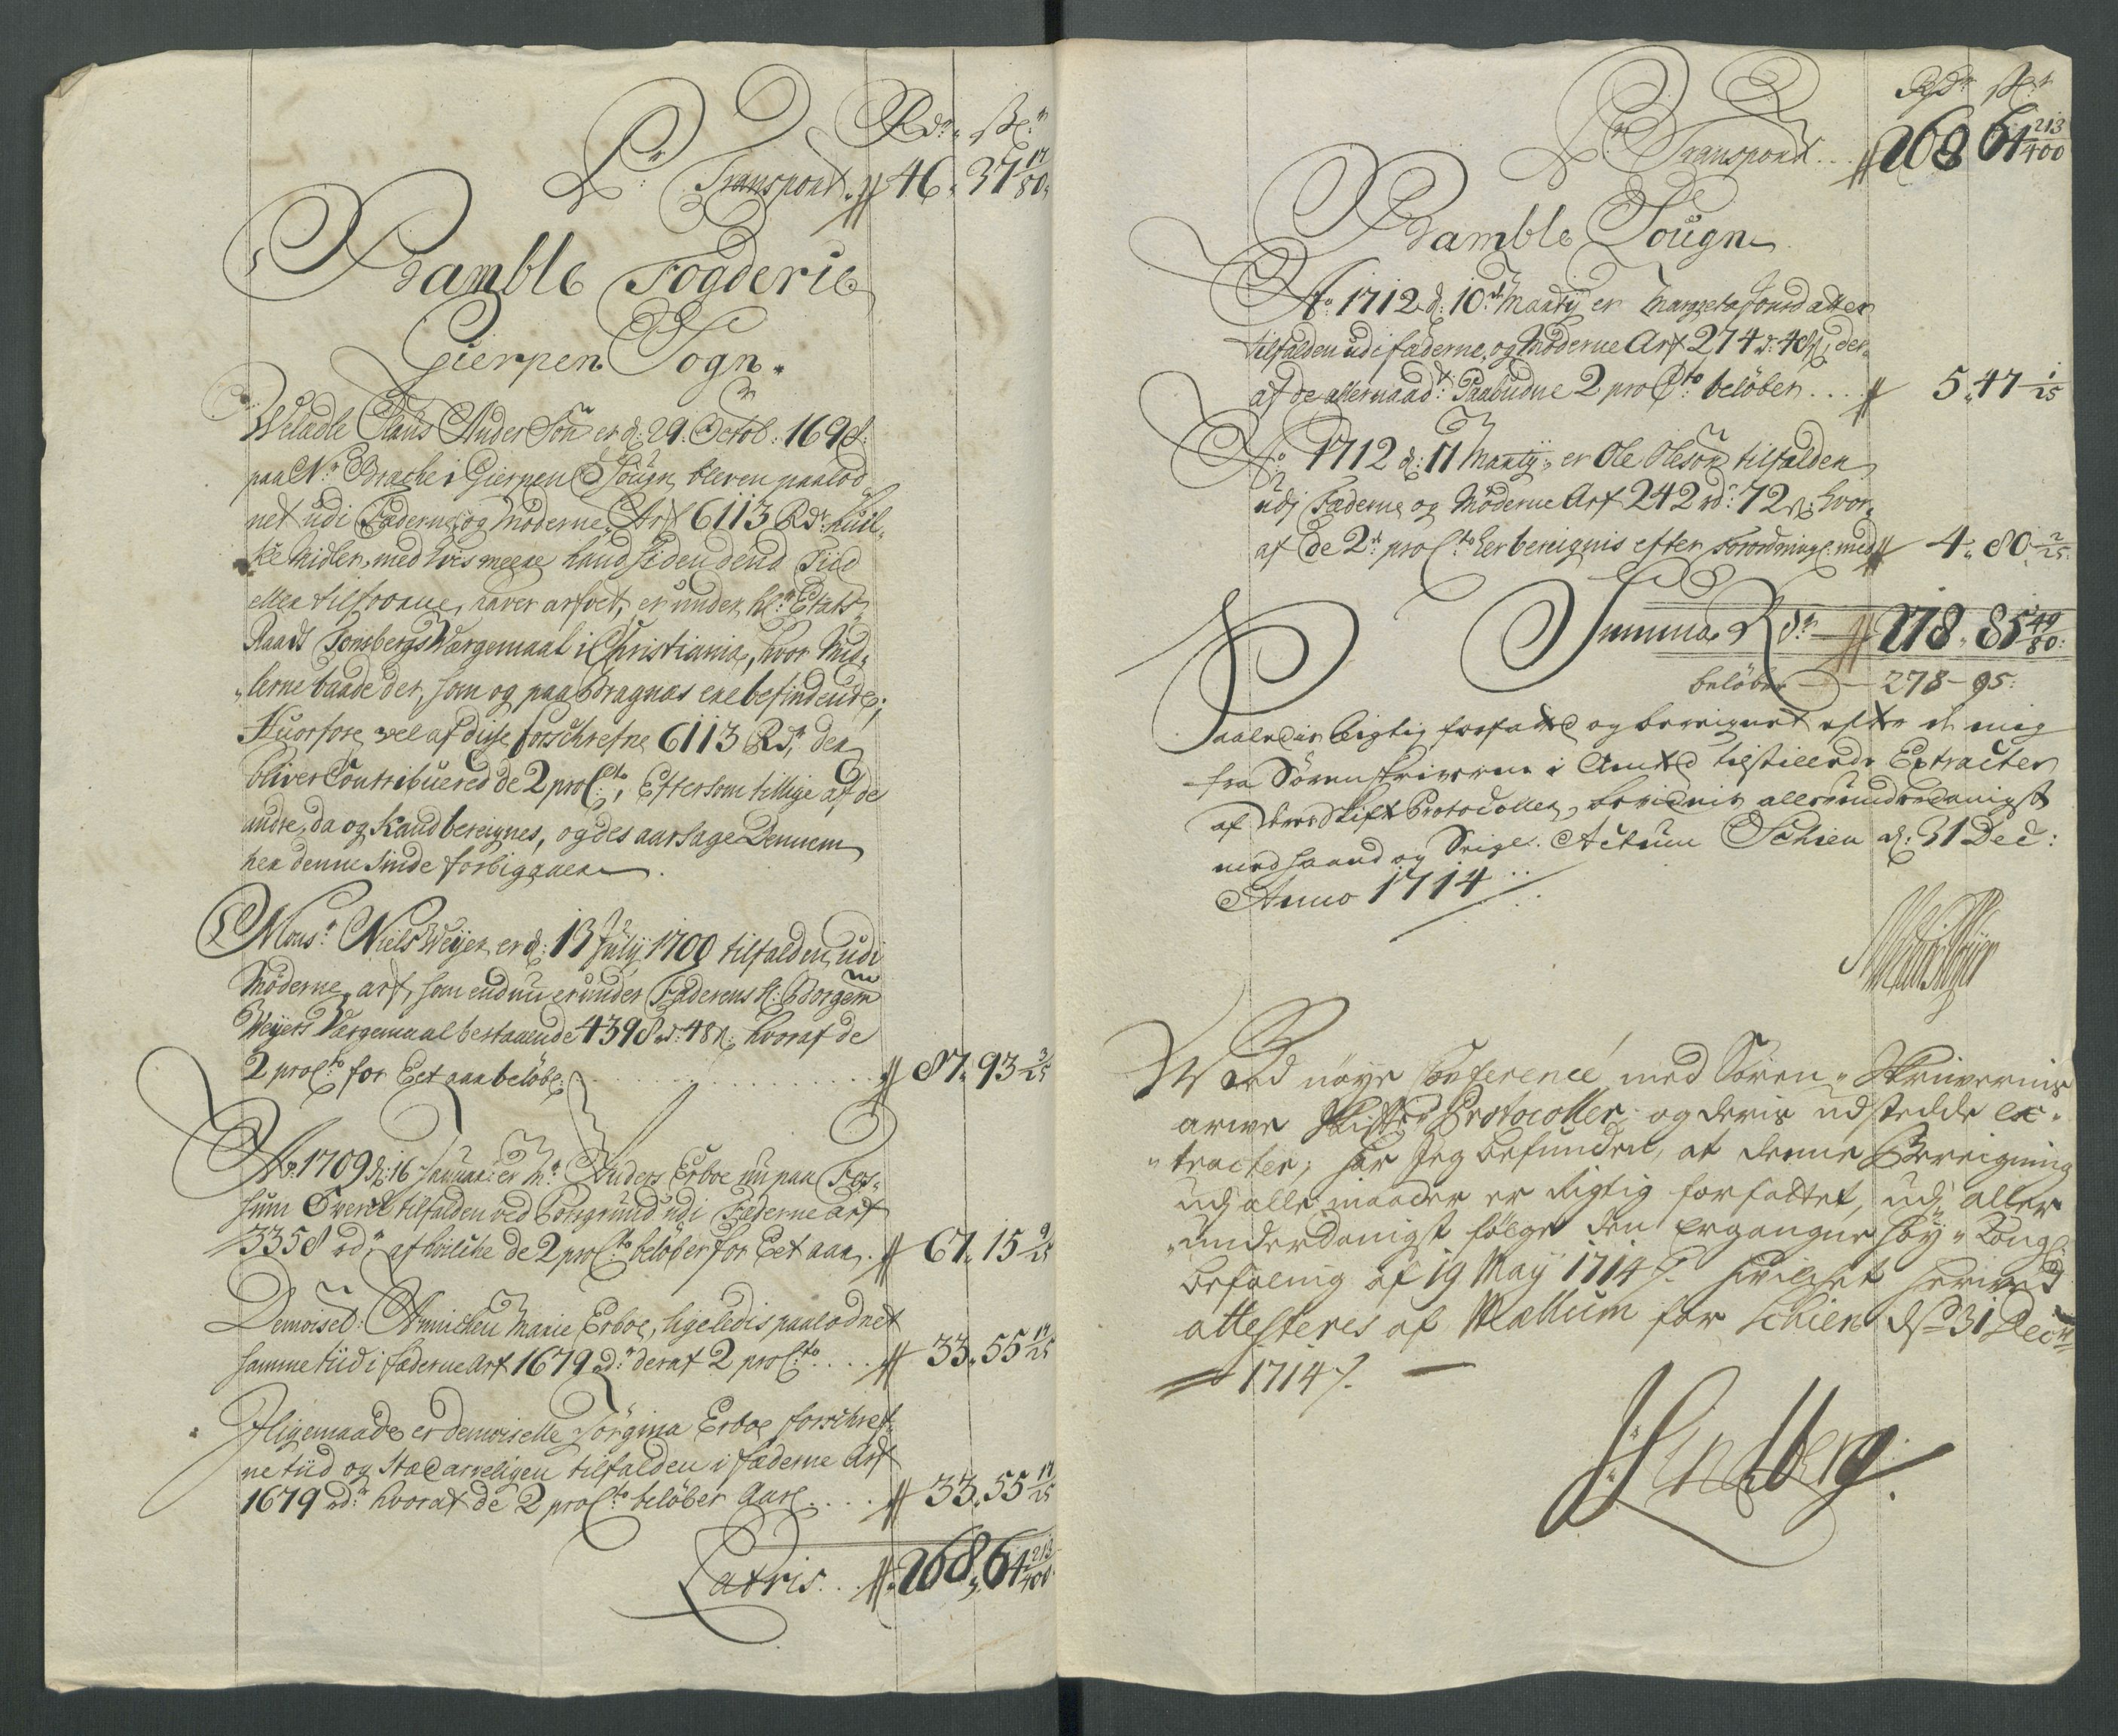 Rdr. skl:r
Pr: Transport. # 46. 37 17/80.
Bamble Fogderie
Gierpen Sogn.
Weladle Claus AnderSøn er d: 29. Octob: 1698.
paa Nr. Brache i Gierpen Sougn bleven paalod
net udi Fæderne og Møderne Arf 6113 Rdr. huil,
ke Midler, med hvis meere hand siden dend Tiid
eller tilforne, haver arfvet, er under hr. Etats
Raads Tonsbergs Wærgemaal i Christiania, hvor Mid,
lerne baade der, som og paa Bragnæs ere befindende;
Huorfore vel af disse forschrefne 6113 Rdr, der
bliver Contribuered de 2 pro C:to, Eftersom tillige af de
andre, da og Kand bereignes, og des aarsage Dennem
her denne sinde forbigaaer.
Monsr. Niels Weyer, er d: 13 July 1700 tilfalden udi
Møderne arf, som endnu er under Faderens hr. Borgem
Weyers Værgemaal bestaaende 4398 rd: 48 s: hvoraf de
2 pro C:to for Eet aar beløbe. # 87. 93 3/25
Ao. 1709 d: 16 Januar: er hr. Anders Erboe nu paa Fos-
sum Øverst tilfalden ved Porsgrund udi Fæderne arf
3358 rdr af hvilche de 2 pro C:to beløber for Eet aar. # 67. 15 9/25
Demoisel: Annichen Marie Erboe, ligeledis paalodnet
samme tiid i fæderne Arf 1679 rdr deraf 2 pro C:to. # 33. 55 17/25
Iligemaade er demoiselle Jörgina Erboe forschref,
ne tiid og Stæd arveligen tilfalden i fæderne Arf
1679 rdr hvoraf de 2 pro C:to beløber Aarl. # 33. 55 17/25
Latris. # 268. 64 213/400
Rdr skr
Pr Transport... # 268 64 213/400
Bamble Sougn
Ao. 1712 d: 10 Marty er Margreta Jonsdatter
tilfalden udi fæderne, og Møderne Arf 274 rd: 48 s, der-
af de allernaad: Paabudne 2 pro C:to beløber.... # 5. 47 1/25
Ao. 1712 d: 11 Marty er Ole Olesøn tilfalden
udj Fæderne og Møderne Arf 242 rd: 72 s: hvor,
af de 2 pro C:to her bereignis efter Forordningl: med # 4. 80 2/25.
Summa Rdr # 278. 85 49/80:
beløber 278 - 95:
Saaledis Rigtig forfatted og bereignet efter de mig
fra Sorenskriverne i Amtet tilstillede Extracter
af deres Skift Protocoller, bevidnis allerunderdanigst
med haand og Seigl. Actum Schien d: 31 Dec:
Anno 1714
Wed nøye Conference med Soren-Skrivernis
arve Skifte Protocoller og deris udstedde ex-
tracter, har Jeg befunden, at denne Bereigning
udj alle maader er Rigtig forfattet, udj aller
underdanigst følge den Ergangne høy Kongl:
befaling af 19 May 1714. hvilchet herved
attesteres af Mællum for Schien dn 31 Decr
1714.
HLindberg.